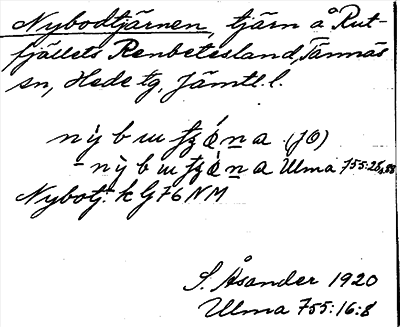 Nybodtjärnen, tjärn å Rut-
fjällets Renbetesland, Tännäs
sn, Hede tg, Jämtl. l.
(JO)
Ulma 755:28
Nybotj. k G 76 NM
S. Åsander 1920
Ulma 755:16:8